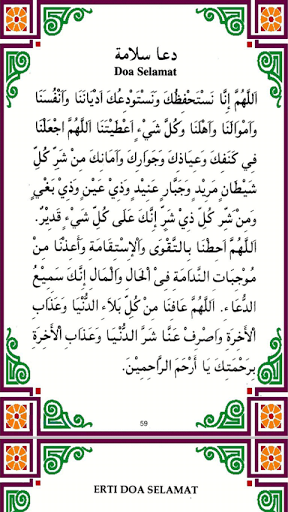 دعا سلامة
Doa Selamat
اَللَّهُمَّ إِنَّا نَسْتَحْفِظُكَ وَنَسْتَوْدِعُكَ اَدْيَانَنَا وَاَنْفُسَنَا
وَاَمْوَالَنَا وَاَهْلَنَا وَكُلَّ شَيْءٍ اَعْطَيْتَنَا اَللَّهُمَّ اجْعَلْنَا
فِي كَنَفِكَ وَعِيَاذِكَ وَجَوَارِكَ وَاَمَانِكَ مِنْ شَرِّ كُلِّ
شَيْطَانٍ مَرِيْدٍ وَجَبَّارٍ عَنِيْدٍ وَذِيْ عَيْنٍ وَذِيْ بَغْيٍ
وَمِنْ شَرِّ كُلِّ ذِيْ شَرٍّ إِنَّكَ عَلَى كُلِّ شَيْءٍ قَدِيْرٌ.
اَللَّهُمَّ اَحِطْنَا بِالتَّقْوَى وَاْلإِسْتِقَامَةِ وَأَعِذْنَا مِنْ
مُوْجِبَاتِ النَّدَامَةِ فِى اْلحَالِ وَاْلمَالِ إِنَّكَ سَمِيْعُ
الدُّعَاءِ. اَللَّهُمَّ عَافِنَا مِنْ كُلِّ بَلَاءِ الدُّنْيَا وَعَذَابِ
اْلأَخِرَةِ وَاصْرِفْ عَنَّا شَرَّ الدُّنْيَا وَعَذَابَ اْلأَخِرَةِ
بِرَحْمَتِكَ يَا أَرْحَمَ الرَّاحِمِيْنَ.
59
ERTI DOA SELAMAT